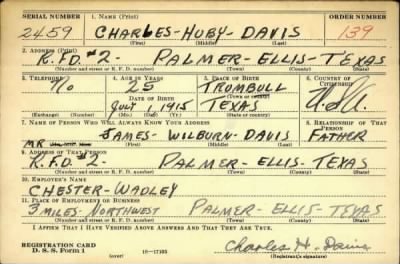 SERIAL NUMBER 1. NAME (Print) ORDER NUMBER
2459 CHARLES-HUBY-DAVIS 139
(First) (Middle) (Last)
2. ADDRESS (Print)
R.F.D. #2- PALMER-ELLIS-TEXAS
(Number and street or R. F. D. number) (Town) (County) (State)
3. TELEPHONE 4. AGE IN YEARS 5. PLACE OF BIRTH 6. COUNTRY OF CITIZENSHIP
NO 25 TRUMBULL U.S.A.
DATE OF BIRTH (Town or county)
JULY 1, 1915 TEXAS
(Exchange) (Number) (Mo.) (Day) (Yr.) (State or country)
7. NAME OF PERSON WHO WILL ALWAYS KNOW YOUR ADDRESS 8. RELATIONSHIP OF THAT PERSON
MR JAMES-WILBURN-DAVIS FATHER
(First) (Middle) (Last)
9. ADDRESS OF THAT PERSON
R.F.D. #2- PALMER-ELLIS-TEXAS
(Number and street or R. F. D. number) (Town) (County) (State)
10. EMPLOYER'S NAME
CHESTER-WADLEY
11. PLACE OF EMPLOYMENT OR BUSINESS
3 MILES-NORTHWEST PALMER-ELLIS-TEXAS
(Number and street or R. F. D. number) (Town) (County) (State)
I AFFIRM THAT I HAVE VERIFIED ABOVE ANSWERS AND THAT THEY ARE TRUE.
REGISTRATION CARD
D. S. S. Form 1 (over) Charles H. Davis